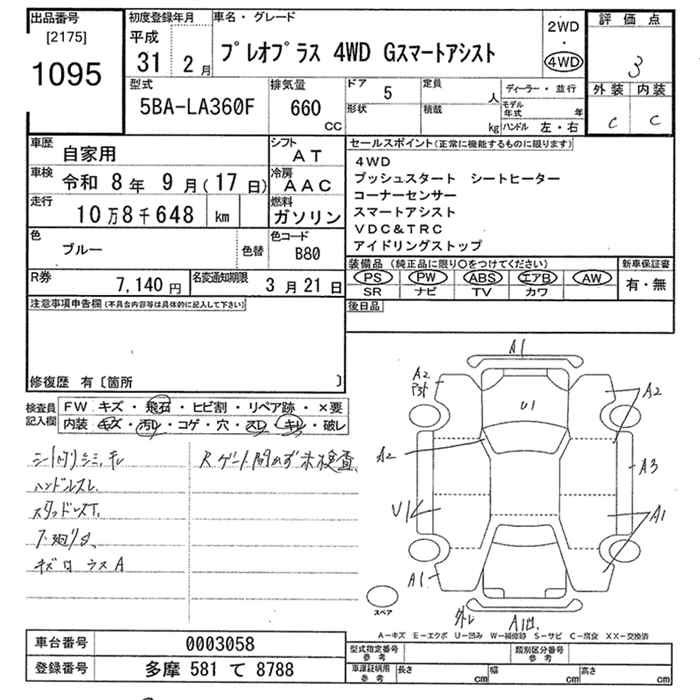 出品番号
[2175]
1095
初度登録年月
平成
31 2月
車名・グレード
プレオプラス 4WD Gスマートアシスト
2WD
・
4WD
評価点
3
外装 内装
C C
型式
5BA-LA360F
排気量
660
CC
ドア 5
定員 人
形状
積載 kg
ディーラー・並行
モデル年式 年
ハンドル 左・右
車歴 自家用
シフト AT
車検 令和 8年 9月(17日)
冷房 AAC
走行 10万8千648 km
燃料 ガソリン
色 ブルー
色替
色コード B80
R券 7,140円
名変通知期限 3月21日
セールスポイント(正常に機能するものに限ります)
4WD
プッシュスタート シートヒーター
コーナーセンサー
スマートアシスト
VDC&TRC
アイドリングストップ
装備品 (純正品に限り○をつけてください)
PS PW ABS エアB AW
SR ナビ TV カワ
新車保証書
有・無
後日品
注意事項申告欄(不具合内容等は具体的に記入して下さい)
修復歴 有〔箇所 〕
検査員記入欄
FW キズ・飛石・ヒビ割・リペア跡・×要
内装 キズ・汚レ・コゲ・穴・スレ・キレ・破レ
ハンドルスレ
キズ A
Rゲート 未検査
A1
A2
U1
A2
A2
A3
U1
A1
A1
スペア
外レ
A1
A−キズ E−エクボ U−凹み W−補修跡 S−サビ C−腐食 XX−交換済
車台番号 0003058
登録番号 多摩 581 て 8788
型式指定番号 参考
類別区分番号 参考
車庫証明用 参考
長さ cm
幅 cm
高さ cm